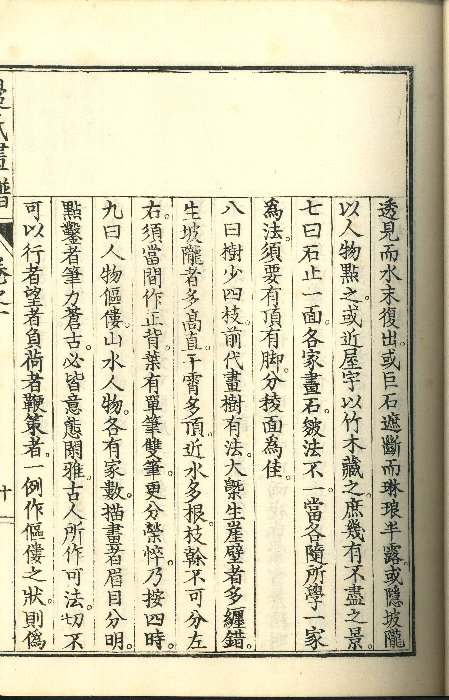 透見而水末復出或巨石遮斷而琳琅半露或隱坡隴
以人物點之或近屋宇以竹木藏之庶幾有不盡之景
七曰石止一面各家畫石皴法不一當各隨所學一家
為法須要有頂有脚分稜面為佳
八曰樹少四枝前代畫樹有法大槩生崖壁者多纏錯
生坡隴者多高直干霄多頂近水多根枝榦不可分左
右須當間作正背葉有單筆雙筆更分榮悴乃按四時
九曰人物傴僂山水人物各有家數描畫者眉目分明
點鑿者筆力蒼古必皆意態閑雅古人所作可法切不
可以行者望者負荷者鞭策者一例作傴僂之狀則偽
畫譜
卷之
十